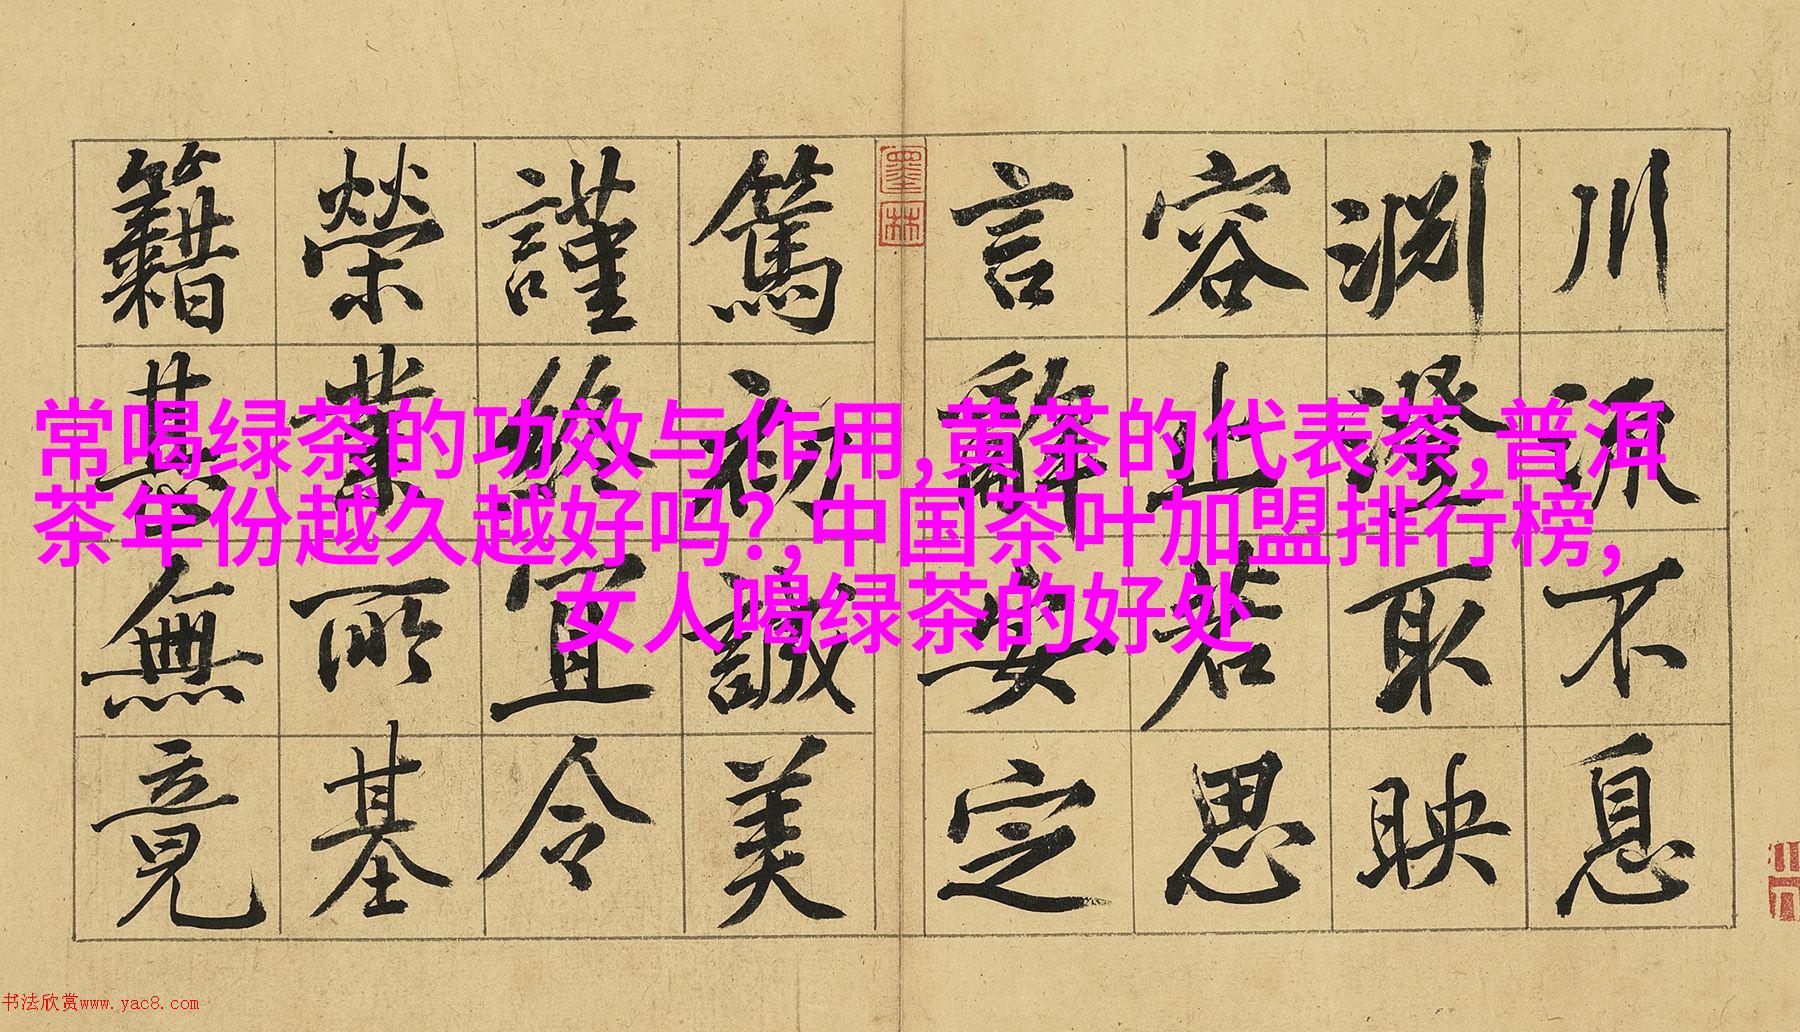 川流不息
淵澄取映
容止若思
言辭安定
篤初誠美
謹終宜令
榮業所基
籍甚無竟
墨林
常喝绿茶的功效与作用,黄茶的代表茶,普洱
茶年份越久越好吗?,中国茶叶加盟排行榜,
女人喝绿茶的好处
书法欣赏www.yac8.com